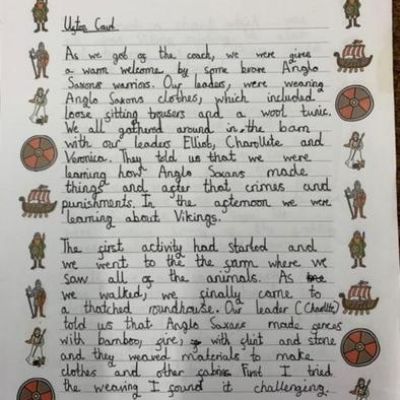 Ufton Court
As we got of the coach, we were given
a warm welcome by some brave Anglo
Saxons warriors. Our leaders, were wearing
Anglo Saxons clothes, which included
loose fitting trousers and a wool tunic.
We all gathered around in the barn
with our leaders Elliot, Charollete and
Veronica. They told us that we were
learning how Anglo Saxans made
things and after that crimes and
punishments. In the afternoon we were
learning about Vikings.
The first activity had started and
we went to the the farm where we
saw all of the animals. As
we walked, we finally came to
a thatched roundhouse. Our leader (Charollete)
told us that Anglo Saxans made fences
with bamboo, fire, with flint and stone
and they weaved materials to make
clothes and other fabics First I tried
the weaving I found it challenging.